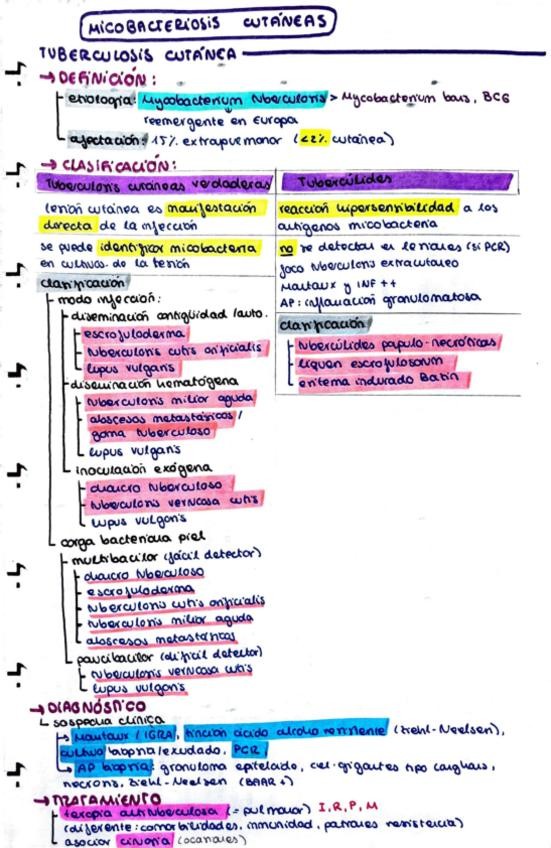 MICOBACTERIOSIS CUTÁNEAS
TUBERCULOSIS CUTÁNEA
→ DEFINICIÓN:
etiología: Mycobacterium tuberculosis > Mycobacterium bovis, BCG
reemergente en Europa
afectación: 15% extrapulmonar (<2% cutánea)
→ CLASIFICACIÓN:
Tuberculosis cutáneas verdaderas
lesión cutánea es manifestación
directa de la infección
se puede identificar micobacteria
en cultivos de la lesión
clasificación
modo infección:
diseminación contigüidad/auto.
escrofuloderma
tuberculosis cutis orificialis
lupus vulgaris
diseminación hematógena
tuberculosis miliar aguda
abscesos metastásicos /
goma tuberculoso
lupus vulgaris
inoculación exógena
chancro tuberculoso
tuberculosis verrucosa cutis
lupus vulgaris
carga bacteriana piel
multibacilar (fácil detectar)
chancro tuberculoso
escrofuloderma
tuberculosis cutis orificialis
tuberculosis miliar aguda
abscesos metastásicos
paucibacilar (difícil detectar)
tuberculosis verrucosa cutis
lupus vulgaris
Tubercúlides
reacción hipersensibilidad a los
antígenos micobacteria
no se detectan en lesiones (sí PCR)
foco tuberculosis extracutáneo
Mantoux y INF ++
AP: inflamación granulomatosa
clasificación
tubercúlides papulo-necróticas
liquen escrofulosorum
eritema indurado Bazin
→ DIAGNÓSTICO
sospecha clínica
→ Mantoux / IGRA, tinción ácido alcohol resistente (Ziehl-Neelsen),
cultivo biopsia/exudado, PCR
→ AP biopsia: granuloma epiteloide, cel. gigantes tipo Langhans,
necrosis, Ziehl-Neelsen (BAAR+)
→ TRATAMIENTO
terapia antituberculosa (= pulmonar) I, R, P, M
(diferente: comorbilidades, inmunidad, patrones resistencia)
asociar cirugía (ocasiones)